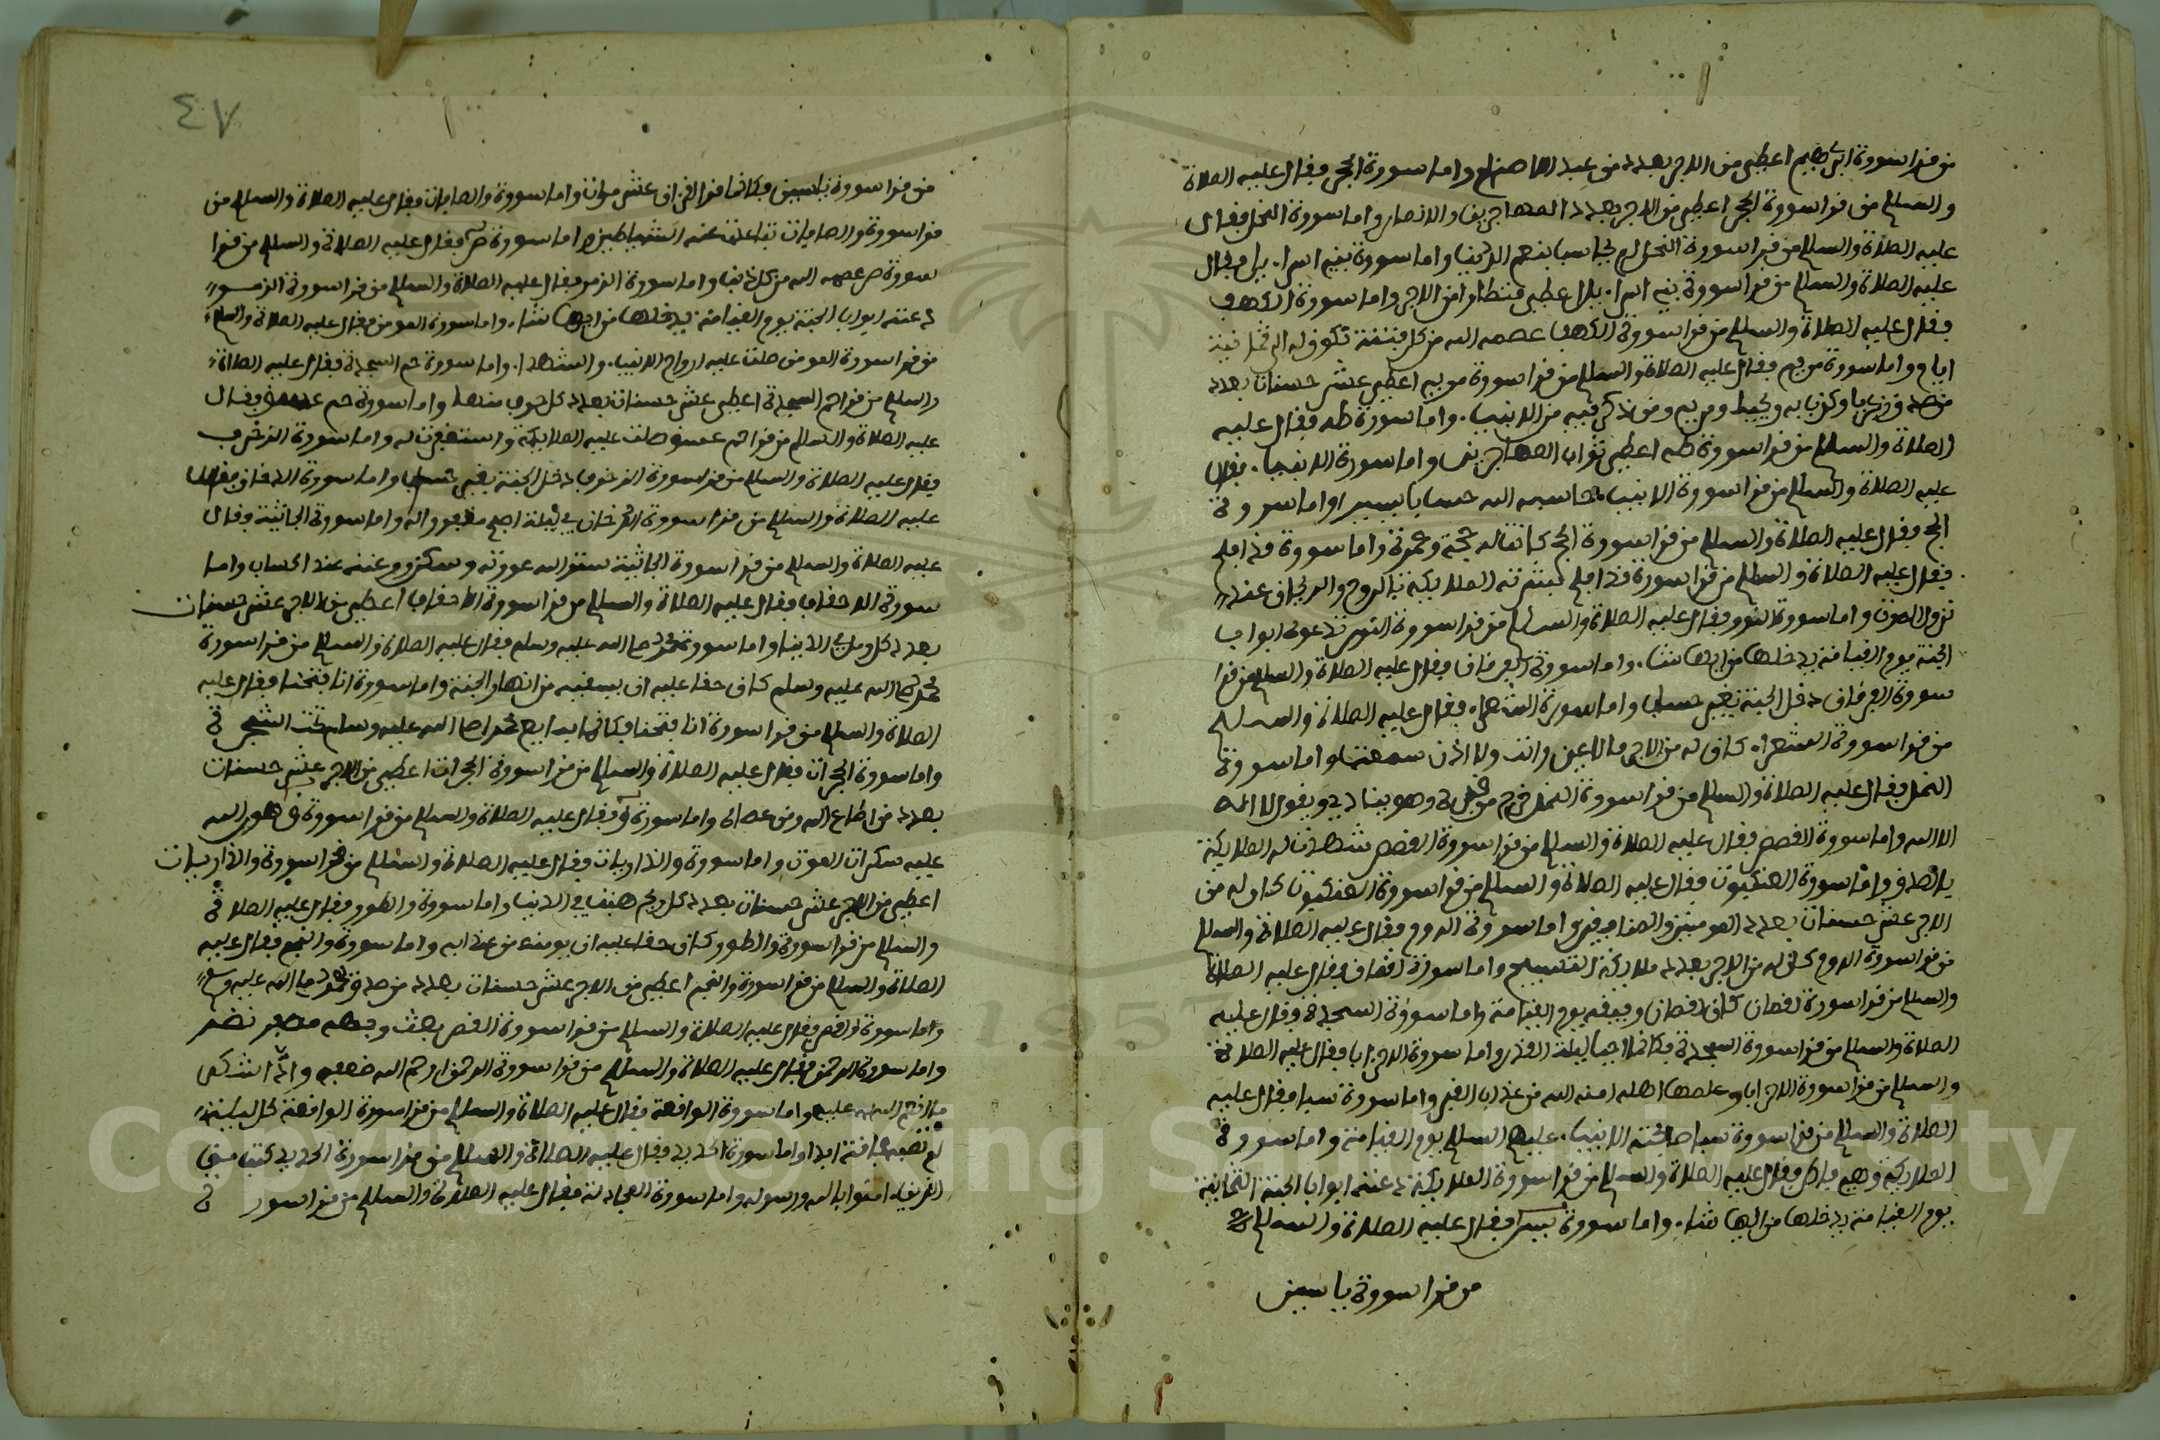 من قرا سورة ابراهيم اعطي من الاجر بعدد من عبد الاصنام واما سورة الحجر فقال عليه الصلاة
والسلام من قرا سورة الحجر اعطي من الاجر بعدد المهاجرين والانصار واما سورة النحل فقال
عليه الصلاة والسلام من قرا سورة النحل لم يحاسب بنعم الدنيا واما سورة بني اسرا.يل فقال
عليه الصلاة والسلام من قرا سورة بني اسرا.يل اعطي قنطارا من الاجر واما سورة الكهف
فقال عليه الصلاة والسلام من قرا سورة الكهف عصمه الله من كل فتنة تكون الى ثمانية
ايام واما سورة مريم فقال عليه الصلاة والسلام من قرا سورة مريم اعطي عشر حسنات بعدد
من صدق زكريا وكذب به ويحيى ومريم ومن ذكر فيه من الانبيا. واما سورة طه فقال عليه
الصلاة والسلام من قرا سورة طه اعطي ثواب المهاجرين واما سورة الانبيا. فقال
عليه الصلاة والسلام من قرا سورة الانبيا. حاسبه الله حسابا يسيرا واما سورة
الحج فقال عليه الصلاة والسلام من قرا سورة الحج كانما له حجة وعمرة واما سورة قد افلح
فقال عليه الصلاة والسلام من قرا سورة قد افلح بشرته الملايكة بالروح والريحان عند
نزول الموت واما سورة النور فقال عليه الصلاة والسلام من قرا سورة النور تدعوه ابواب
الجنة يوم القيامة يدخلها من ايها شا. واما سورة الفرقان فقال عليه الصلاة والسلام من قرا
سورة الفرقان دخل الجنة بغير حساب واما سورة الشعرا. فقال عليه الصلاة والسلام
من قرا سورة الشعرا. كان له من الاجر ما لا عين رات ولا اذن سمعت واما سورة
النمل فقال عليه الصلاة والسلام من قرا سورة النمل خرج من قبره وهو ينادي ويقول لا اله
الا الله واما سورة القصص فقال عليه الصلاة والسلام من قرا سورة القصص شهدت له الملايكة
بالصدق واما سورة العنكبوت فقال عليه الصلاة والسلام من قرا سورة العنكبوت كان له من
الاجر عشر حسنات بعدد المومنين والمنافقين واما سورة الروم فقال عليه الصلاة والسلام
من قرا سورة الروم كان له من الاجر بعدد ملايكة التسبيح واما سورة لقمان فقال عليه الصلاة
والسلام من قرا سورة لقمان كان لقمان رفيقه يوم القيامة واما سورة السجدة فقال عليه
الصلاة والسلام من قرا سورة السجدة فكانما احيا ليلة القدر واما سورة الاحزاب فقال عليه الصلاة
والسلام من قرا سورة الاحزاب وعلمها اهله امنه الله من عذاب القبر واما سورة سبا فقال عليه
الصلاة والسلام من قرا سورة سبا صافحته الانبيا. عليهم السلام يوم القيامة واما سورة
الملايكة وهي فاطر فقال عليه الصلاة والسلام من قرا سورة الملايكة دعته ابواب الجنة الثمانية
يوم القيامة يدخلها من ايها شا. واما سورة يس فقال عليه الصلاة والسلام
من قرا سورة ياسين
٤٧
من قرا سورة ياسين فكانما قرا القران عشر مرات واما سورة والصافات فقال عليه الصلاة والسلام من
قرا سورة والصافات تباعدت عنه الشياطين واما سورة ص فقال عليه الصلاة والسلام من قرا
سورة ص عصمه الله من كل ذنب واما سورة الزمر فقال عليه الصلاة والسلام من قرا سورة الزمر
دعته ابواب الجنة يوم القيامة يدخلها من ايها شا. واما سورة المومن فقال عليه الصلاة والسلام
من قرا سورة المومن صلت عليه ارواح الانبيا. والشهدا. واما سورة حم السجدة فقال عليه الصلاة
والسلام من قرا حم السجدة اعطي عشر حسنات بعدد كل حرف منها واما سورة حم عسق فقال
عليه الصلاة والسلام من قرا حم عسق صلت عليه الملايكة واستغفرت له واما سورة الزخرف
فقال عليه الصلاة والسلام من قرا سورة الزخرف دخل الجنة بغير حساب واما سورة الدخان فقال
عليه الصلاة والسلام من قرا سورة الدخان في ليلة اصبح مغفورا له واما سورة الجاثية فقال
عليه الصلاة والسلام من قرا سورة الجاثية ستر الله عورته وسكن روعته عند الحساب واما
سورة الاحقاف فقال عليه الصلاة والسلام من قرا سورة الاحقاف اعطي من الاجر عشر حسنات
بعدد كل رمل في الدنيا واما سورة محمد صلى الله عليه وسلم فقال عليه الصلاة والسلام من قرا سورة
محمد صلى الله عليه وسلم كان حقا عليه ان يسقيه من انهار الجنة واما سورة انا فتحنا فقال عليه
الصلاة والسلام من قرا سورة انا فتحنا فكانما بايع محمد صلى الله عليه وسلم تحت الشجرة
واما سورة الحجرات فقال عليه الصلاة والسلام من قرا سورة الحجرات اعطي من الاجر عشر حسنات
بعدد من اطاع الله ومن عصاه واما سورة ق فقال عليه الصلاة والسلام من قرا سورة ق هون الله
عليه سكرات الموت واما سورة والذاريات فقال عليه الصلاة والسلام من قرا سورة والذاريات
اعطي من الاجر عشر حسنات بعدد كل ريح هبت في الدنيا واما سورة والطور فقال عليه الصلاة
والسلام من قرا سورة والطور كان حقا عليه ان يومنه من عذابه واما سورة والنجم فقال عليه
الصلاة والسلام من قرا سورة والنجم اعطي من الاجر عشر حسنات بعدد من صدق محمد صلى الله عليه وسلم
واما سورة القمر فقال عليه الصلاة والسلام من قرا سورة القمر بعث ووجهه
واما سورة الرحمن فقال عليه الصلاة والسلام من قرا سورة الرحمن رحم الله ضعفه وادى شكر
ما انعم الله عليه واما سورة الواقعة فقال عليه الصلاة والسلام من قرا سورة الواقعة كل ليلة
لم تصبه فاقة ابدا واما سورة الحديد فقال عليه الصلاة والسلام من قرا سورة الحديد كتب من
الذين امنوا بالله ورسوله واما سورة المجادلة فقال عليه الصلاة والسلام من قرا سورة
Copyright © King Saud University
195